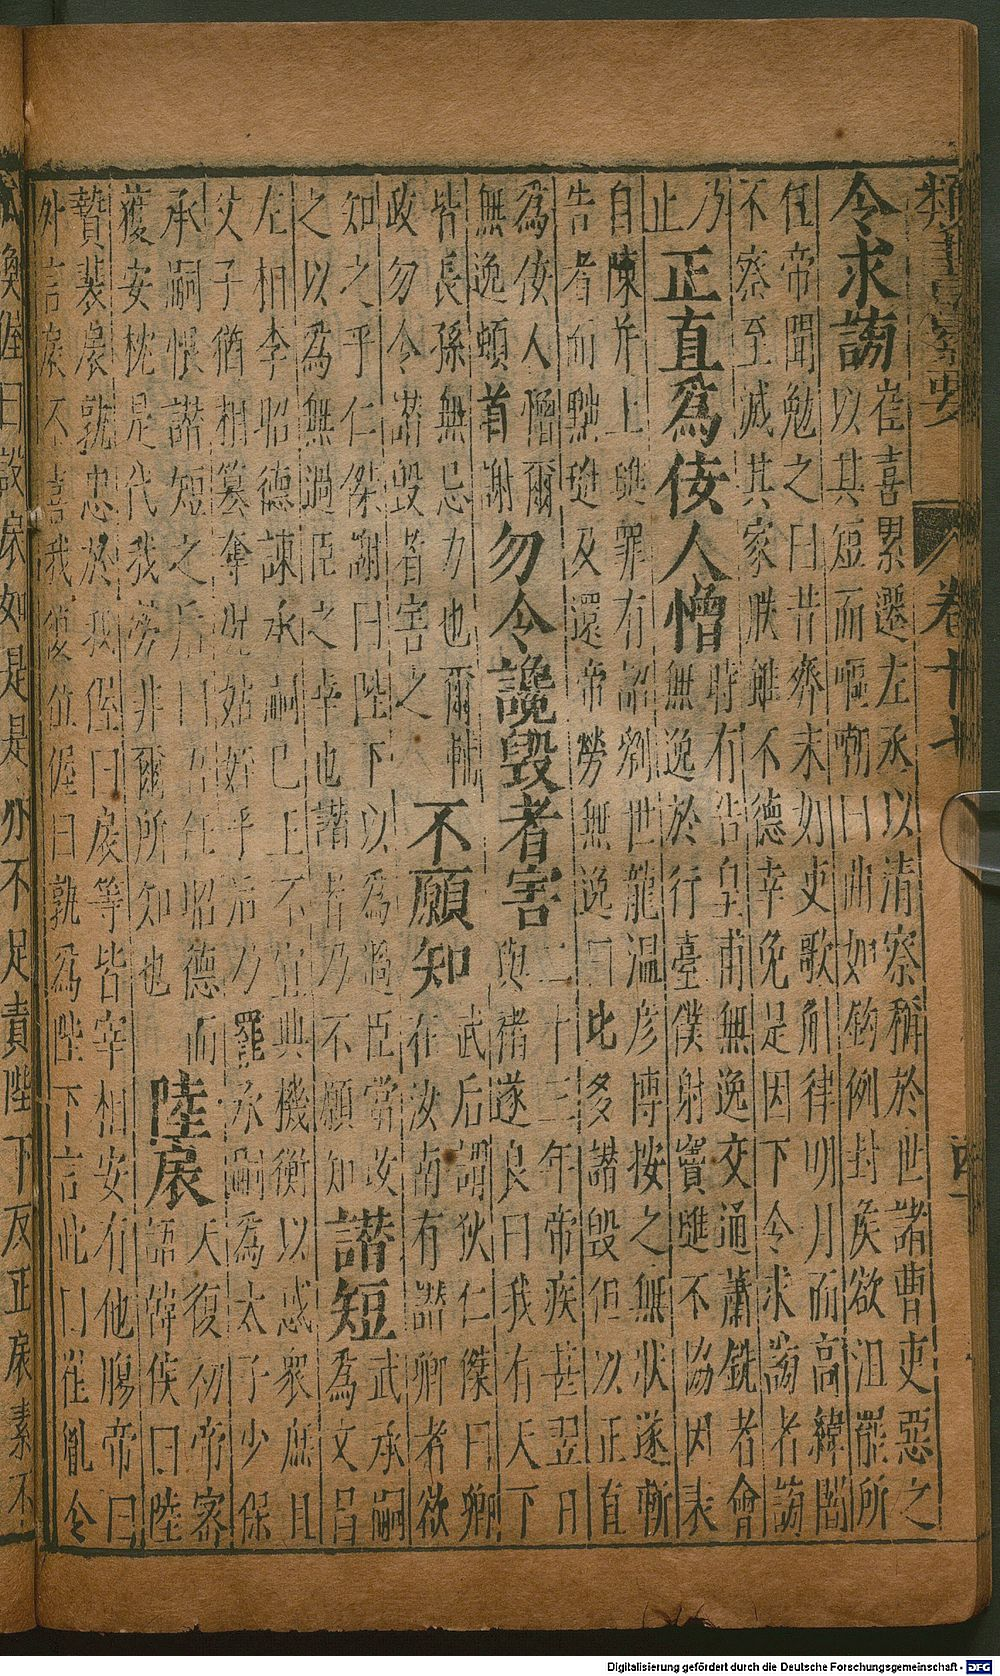 類書
要
卷十七
令求謗
崔喜累遷左丞以清察稱於世諸曹吏惡之
以其短而嘔嘲曰曲如鈎例封矦欲沮罷所
任帝聞勉之曰昔齊末奴吏歌斛律明月而高緯闇
不察至滅其家朕雖不德幸免是因下令求謗者謗
乃
止
正直爲佞人憎
時有告皇甫無逸交通蕭銑者會
無逸於行臺僕射竇璡不協因表
自陳并上璡罪有詔劉世龍溫彦博按之無狀遂斬
告者而黜璡及還帝勞無逸曰比多譖毀但以正直
為佞人憎爾
無逸頓首謝
勿令讒毀者害
二十三年帝疾甚翌日
與褚遂良曰我有天下
皆長孫無忌力也爾輔
政勿令讒毀者害之
不願知
武后謂狄仁傑曰卿
在汝南有譖卿者欲
知之乎仁傑謝曰陛下以為過臣當改
之以為無過臣之幸也譖者乃不願知
譖短
武承嗣
為文昌
左相李昭德諫承嗣已王不宜典機衡以惑衆庶且
父子猶相簒奪況姑姪乎后乃罷承嗣為太子少保
承嗣恨譖短之后曰吾任昭德而
獲安枕是代我勞非爾所知也
陸扆
天復初帝宻
語韓偓曰陸
贄裴扆孰忠於我偓曰扆等皆宰相安有他腸帝曰
外言扆不喜我復位偓曰孰為陛下言此曰崔胤令
渙偓曰設扆如是是亦不足責陛下反正扆素不
Digitalisierung gefördert durch die Deutsche Forschungsgemeinschaft - DFG